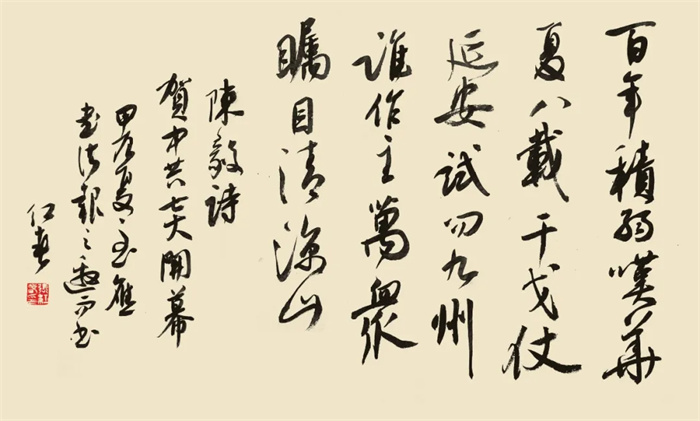 百年積弱嘆華
夏八載干戈仗
延安試問九州
誰作主萬衆
矚目清涼山
陳毅詩
賀中共七大開幕
甲辰夏之應
書法報之邀而書